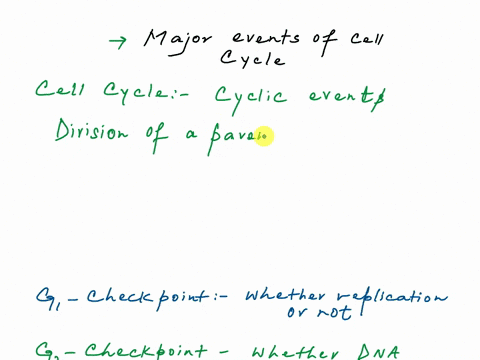 → Major events of cell
Cycle
Cell Cycle:- Cyclic events
Division of a paren
G1 - Checkpoint:- whether replication
or not
G2 - Checkpoint - whether DNA